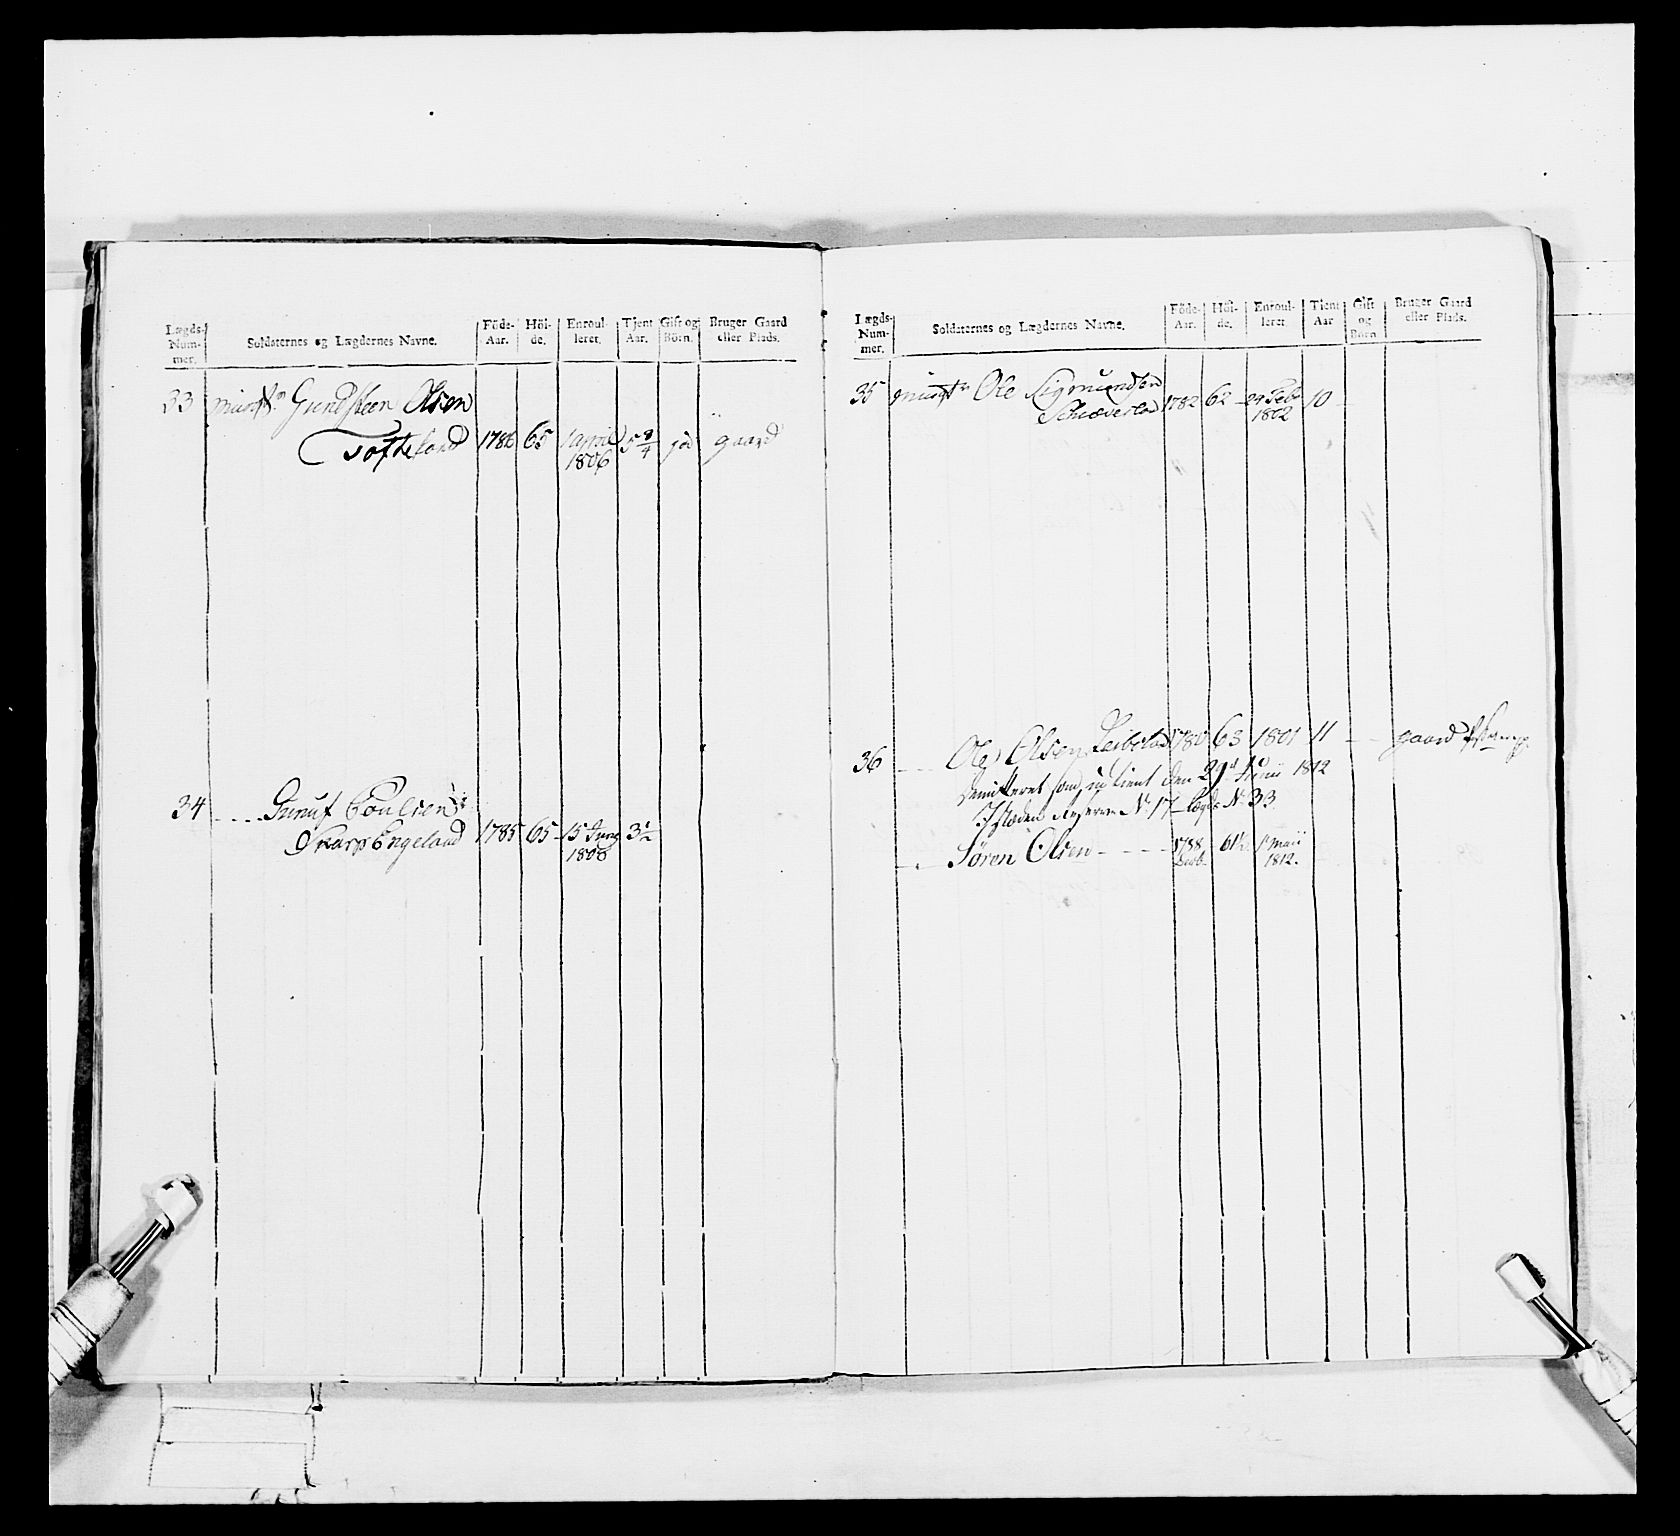 Lægds-Num-mer. Soldaternes og Lægdernes Navne. Föde-Aar. Höi-de. Enroul-leret. Tjent Aar. Gift og Börn. Bruger Gaard eller Plads.
33 Gundsteen Olsen
Tofteland 1786 65 1 april 1806 5 3/4 ja gaard
34 Gunuf Poulsen
Skarpengeland 1785 65 15 Juny 1808 3 1/2
Lægds-Num-mer. Soldaternes og Lægdernes Navne. Föde-Aar. Höi-de. Enroul-leret. Tient Aar Gift og Börn. Bruger Gaard eller Plads.
35 Ole Sigmundsen
1782 62 29 Feb 1802 10
36 Ole Olsen 1780 63 1801 11 gaard
Demitteret den 29d Junii 1812
Isteden Reserve No 17 Lægd No 33
Søren Olsen 1788 61½ 1 Maii 1812.